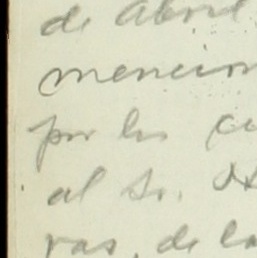 de Abril
mencion
por los cu
al Sr. H
ras, de la